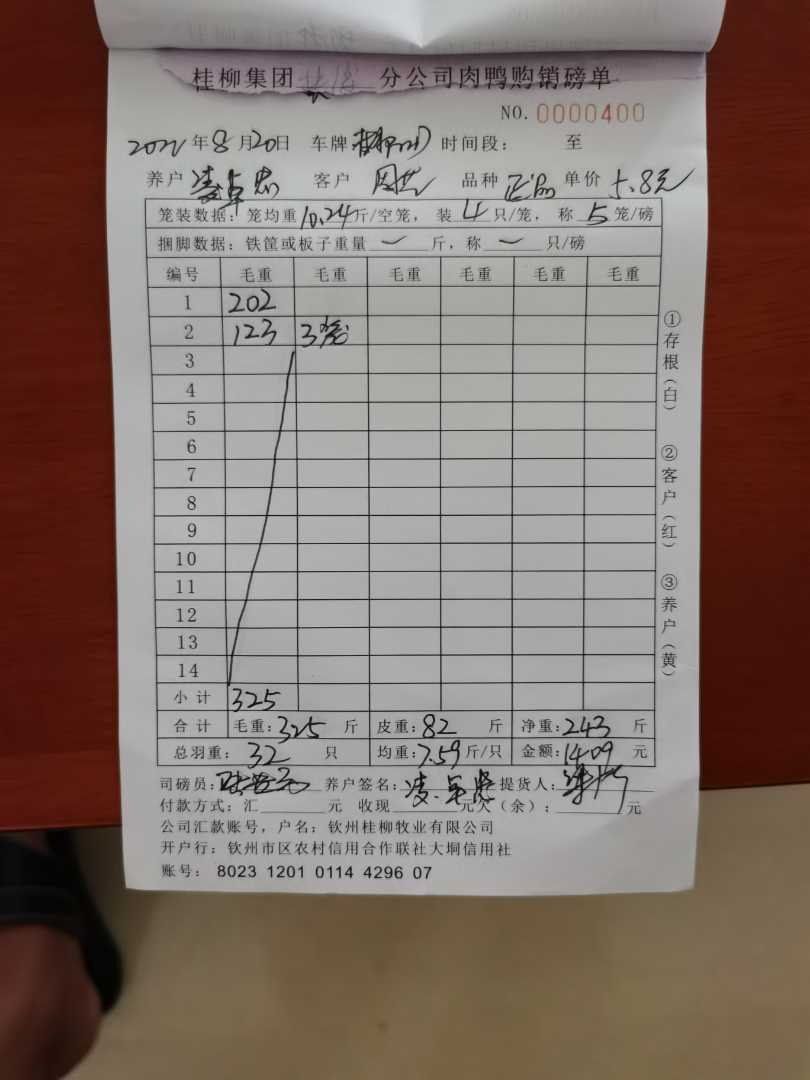 桂柳集团 分公司肉鸭购销磅单
NO. 0000400
2022年8月20日 车牌 时间段： 至
养户 凌卓忠 客户 周 品种 正品 单价 5.8元
笼装数据：笼均重10.24斤/空笼，装4只/笼，称5笼/磅
捆脚数据：铁筐或板子重量 — 斤，称 — 只/磅
编号 毛重 毛重 毛重 毛重 毛重 毛重
1 202
2 123 3笼
3
4
5
6
7
8
9
10
11
12
13
14
小计 325
合计 毛重：325 斤 皮重：82 斤 净重：243 斤
总羽重：32 只 均重：7.59斤/只 金额：1409 元
司磅员： 养户签名：凌卓忠 提货人：
付款方式：汇 元 收现 元欠（余）： 元
公司汇款账号，户名：钦州桂柳牧业有限公司
开户行：钦州市区农村信用合作联社大垌信用社
账号：8023 1201 0114 4296 07
①存根（白）
②客户（红）
③养户（黄）